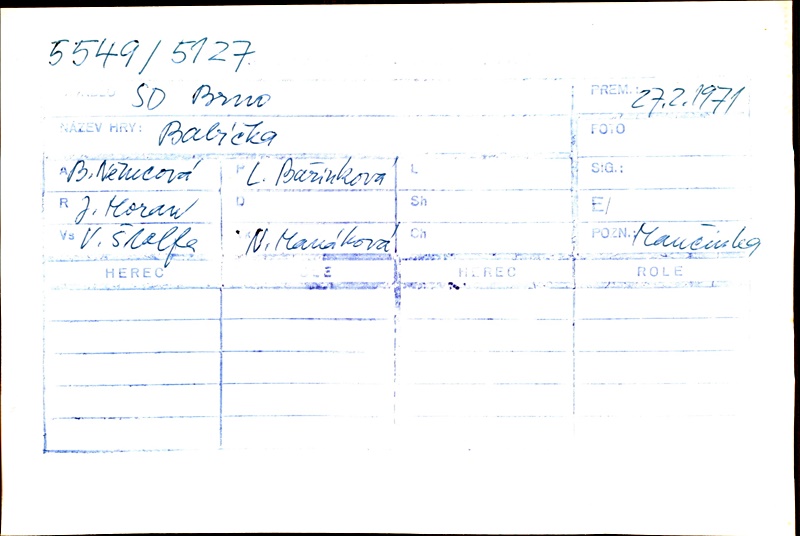 5549/5127
SD Brno PREM.: 27.2.1971
NÁZEV HRY: Babička FOTO
A B. Němcová P L. Bařinkova L SIG.:
R J. Moran D Sh E/
Vs V. Štolfa N. Manáková Ch POZN.: Mančinska
HEREC ROLE HEREC ROLE